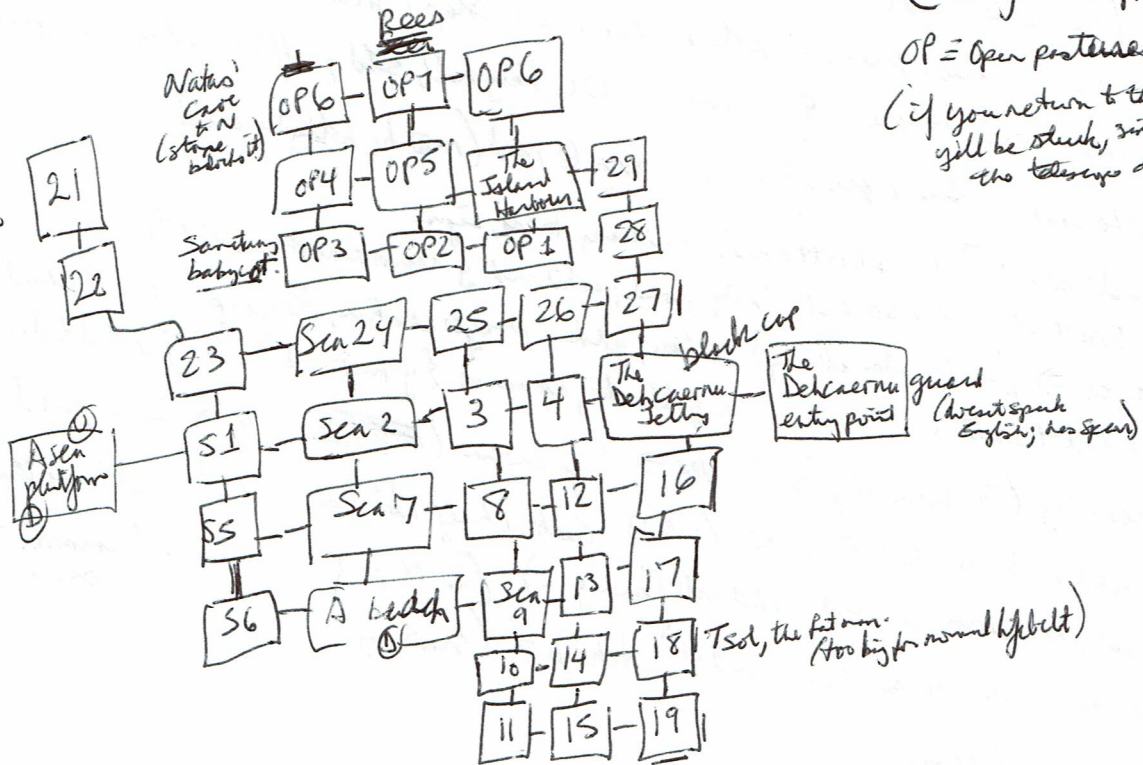 Rees
OP ≡ Open pastures
(if you return to th
will be stuck, sin
the telescope
Natas'
cave
to N
(stone
blocks it)
OP6
OP7
OP6
21
OP4
OP5
The
Island
Harbour
29
22
Sanctuary
babycot
OP3
OP2
OP1
28
23
Sea 24
25
26
27
black cap
A sea
platform
U
D
S1
Sea 2
3
4
The
Dehcaernu
Jetty
The
Dehcaernu
entry point
guard
(doesn't speak
English; has spear)
S5
Sea 7
8
12
16
S6
A beach
D
Sea
9
13
17
10
14
18
Tsol, the fat man.
(too big for normal lifebelt)
11
15
19